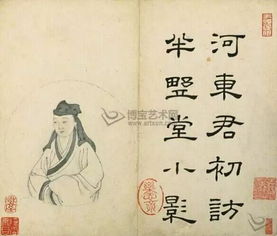 河東君初訪
半野堂小影
博宝艺术网
www.artxun.com